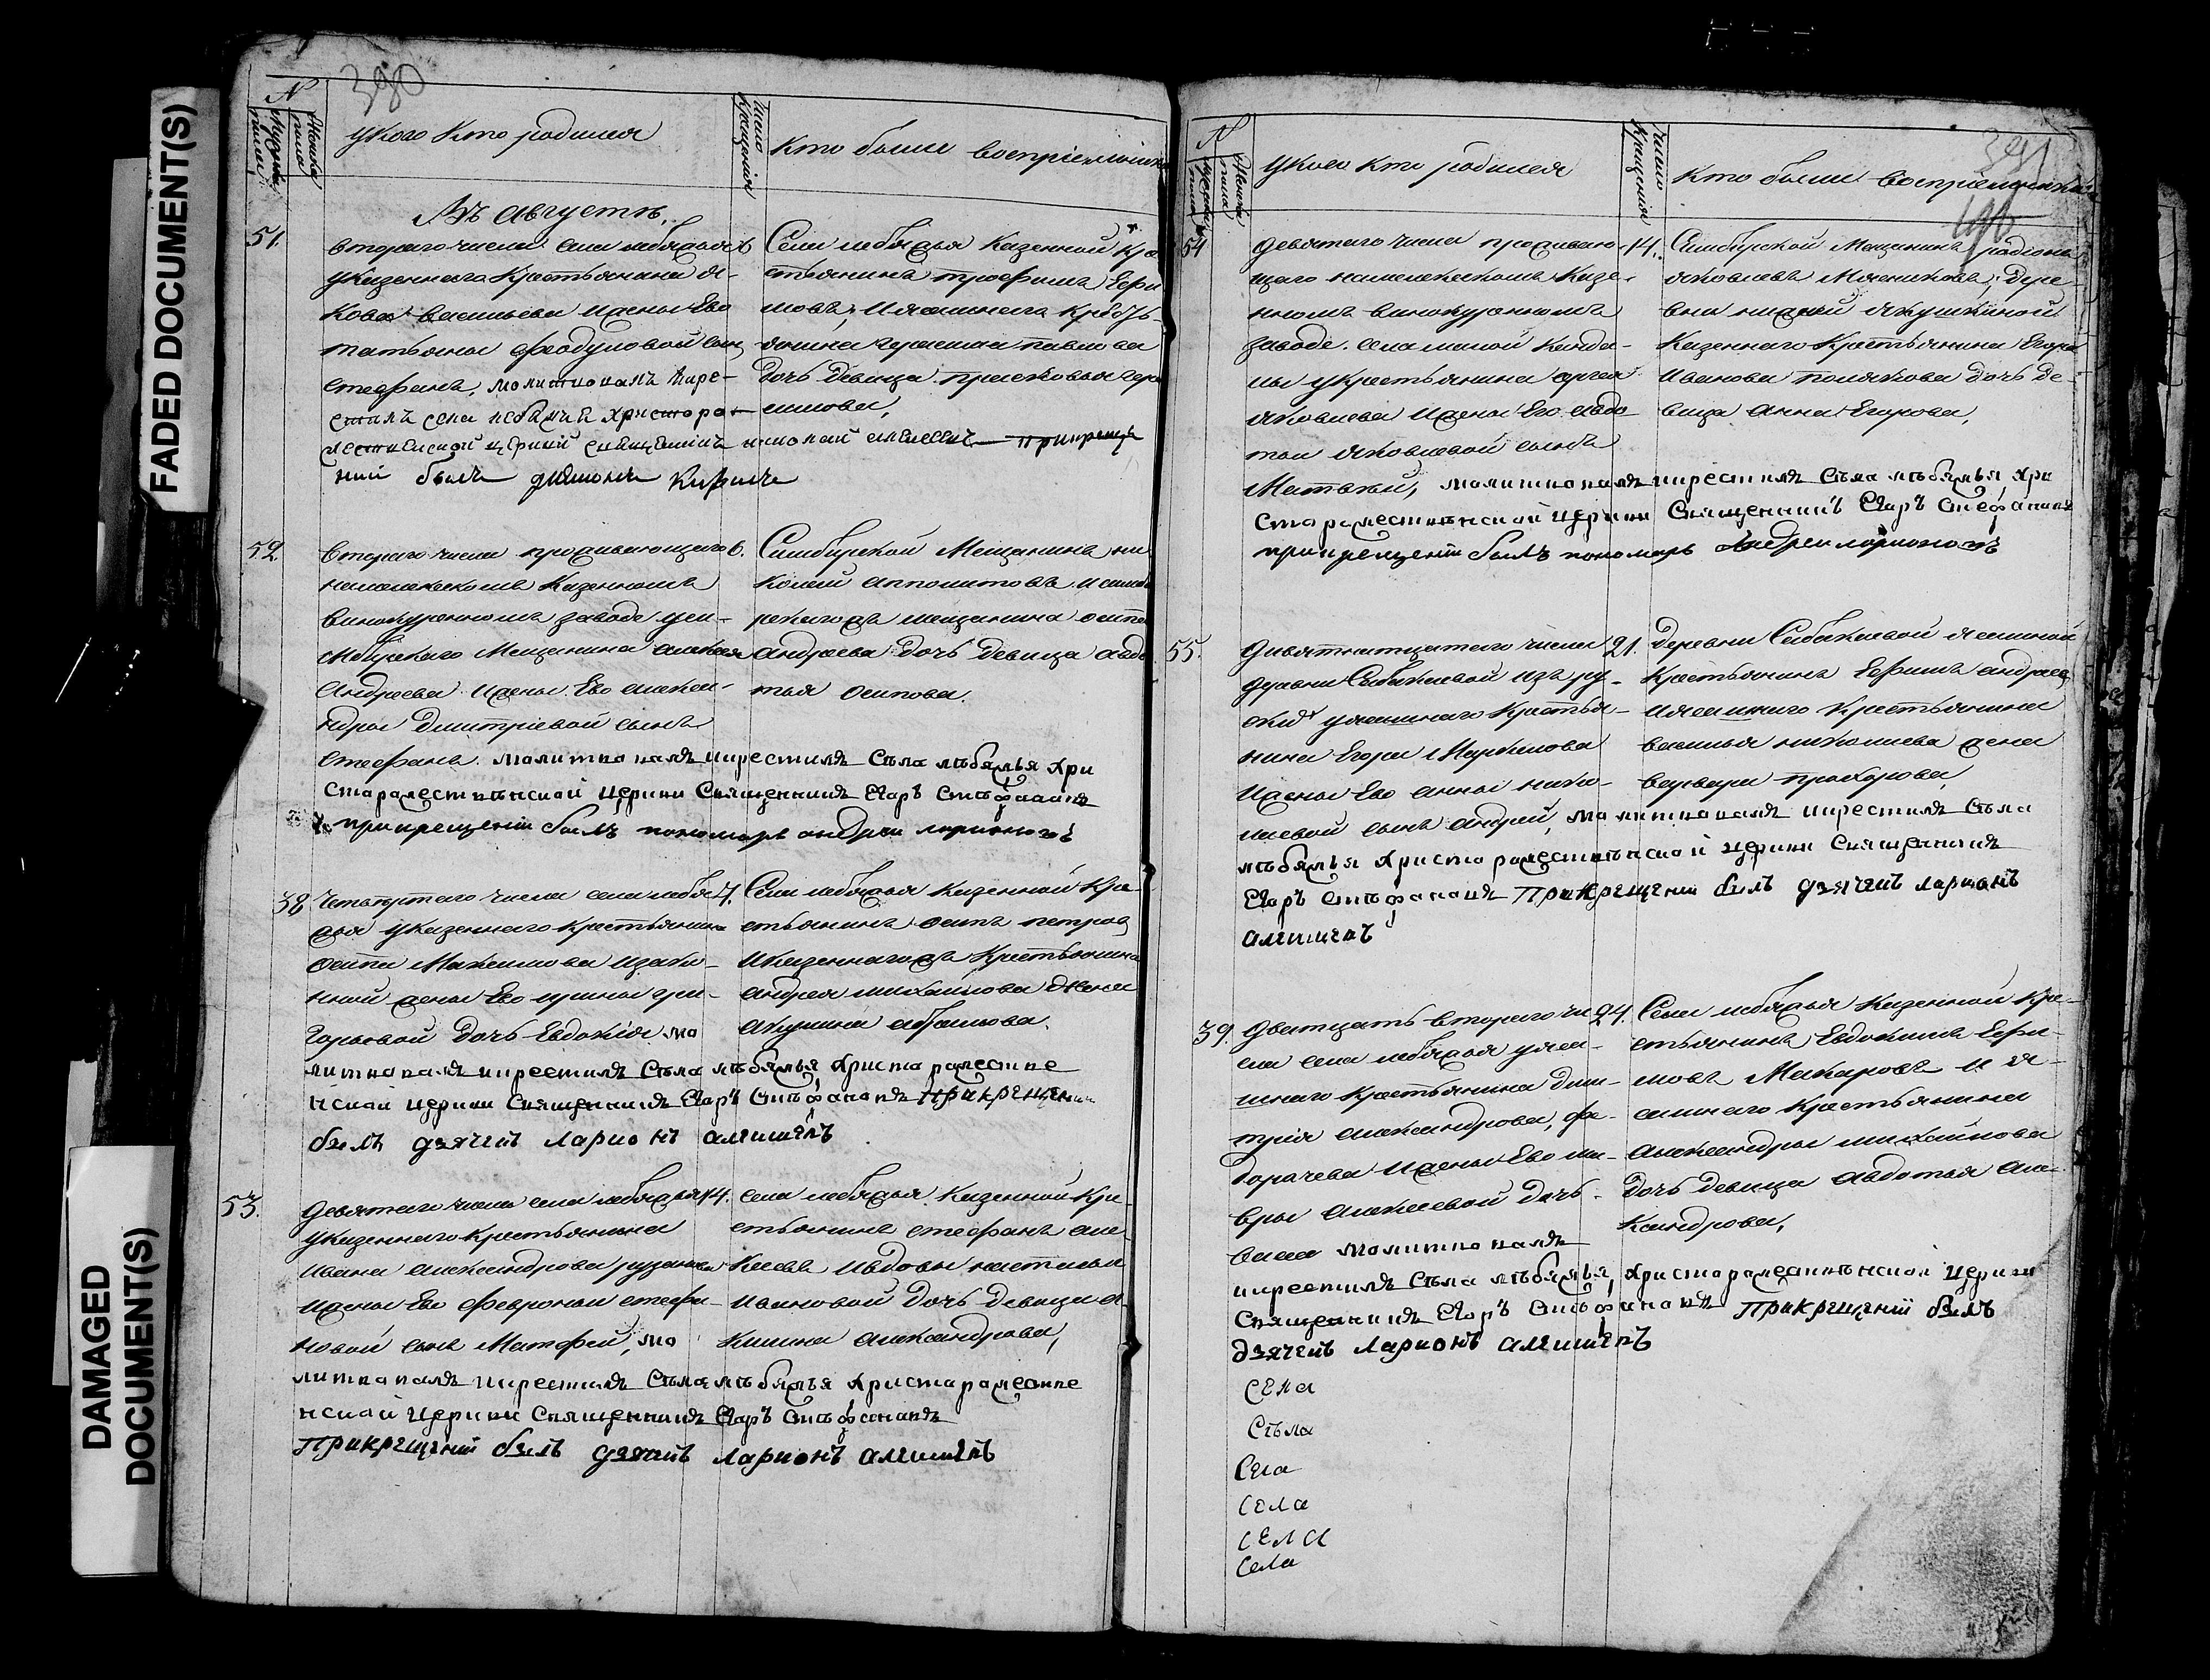 FADED DOCUMENT(S)
DAMAGED DOCUMENT(S)
380
N
Мужеска пола
Женска пола
у кого кто родился
число крещения
кто были восприемники
Въ августѣ.
51.
второго числа села лебяжья 6
у казеннаго крестьянина я-
кова васильева и жены Ево
татьяны феодуловой сын
стефанъ, молитвовалъ и кре-
стилъ села лебяжья христоро-
ждественской церкви священникъ николай алексеевъ при креще
нии былъ диаконъ
Села лебяжья казенной кре
стьянинъ трофимъ Ефи
мовъ, и ясашнаго кресть-
янина герасима павлова
дочь девица прасковья гера
симова,
52.
второго числа проживающаго 6.
на мелекескомъ казенномъ
винокуренномъ заводе у си-
мбирскаго мещанина алексея
андреева и жены Ево алекса-
ндры димитриевой сынъ
стефанъ. молитвовалъ и крестилъ Съла лѣбяжья хри
старождествѣнской церкви Священникъ Егоръ Стѣфановъ
при крещении былъ пономарь андреи ларионовъ
Симбирской мещанинъ ни
колай апполитовъ и симби
рскагожъ мещанина осипа
андреева дочь девица авдо
тья осипова.
38
Четвертаго числа села лебя 7.
жья у казеннаго крестьянина
осипа Максимова изако-
нной жены Ево ирины гри-
горьевой дочь Евдокия мо
литвовалъ и крестилъ Съла лѣбяжья христарождестве
нской церкви Священникъ Егоръ Стѣфановъ При крещении
былъ дьячекъ Ларионъ алешинъ
Села лебяжья казенной кре-
стьянинъ осипъ петровъ
и казеннагожъ крестьянина
андрея михайлова жена
акулина абрамова.
53.
девятаго числа села лебяжья 14.
у казеннаго крестьянина
ивана александрова рузанова
и жены Ево февронии стефа-
новой сынъ Матфей, мо
литвовалъ и крестилъ Съла лѣбяжья христарождестве
нской церкви Священникъ Егоръ Стѣфановъ
При крещении былъ дьячекъ Ларионъ алешинъ
села лебяжья казенной кре-
стьянинъ стефанъ але
ксеевъ и вдовы настасьи
ивановой дочь девица а-
кулина александрова,
391
N
Мужеска пола
Женска пола
у кого кто родился
число крещения
кто были восприемники
54
девятаго числа проживаю- 14.
щаго на мелекескомъ казе-
нномъ винокуренномъ
заводе. села малой канда-
лы у крестьянина сергея
яковлева и жены Его авдо
тьи яковлевой сынъ
Матвѣй, молитвовалъ и крестилъ Съла лѣбяжья, хри
старождествѣнской церкви Священникъ Егоръ Стефановъ
при крещении былъ пономарь Андреи ларионовъ
Симбирской мещанинъ радионъ
яковлевъ Мясниковъ; дере-
вни нижней якушкиной
казеннаго крестьянина Егора
иванова полякова дочь де-
вица анна Егорова,
55.
девятнатцатаго числа 21.
деревни Сабакаевой изъ ру-
скихъ у ясашнаго крестья-
нина Егора Маркелова
и жены Ево анны нико-
лаевой сынъ андрей, молитвовалъ и крестилъ Съла
лѣбяжья христарождествѣнской церкви Священникъ
Егоръ Стѣфановъ При крещении былъ дьячекъ Ларионъ
алешинъ
деревни Сабакаевой ясашной
крестьянинъ Ефимъ андреевъ
и ясашнаго крестьянина
василья николаева жена
варвара прохорова,
39.
дватцать второго чи 24.
сла села лебяжья у яса-
шнаго крестьянина дми-
трия александрова, фе-
дорачева и жены Ево ма-
вры алексеевой дочь
васса молитвовалъ
и крестилъ Съла лѣбяжья, христарождествѣнской церкви
Священникъ Егоръ Стѣфановъ При крещении былъ
дьячекъ Ларионъ алешинъ
Села лебяжья казенной кре-
стьянинъ Евдокимъ Ефи-
мовъ Макаровъ и я-
сашнаго крестьянина
александры михайлова
дочь девица авдотья але-
ксандрова,
Села
Съла
Села
Села
Села
Села